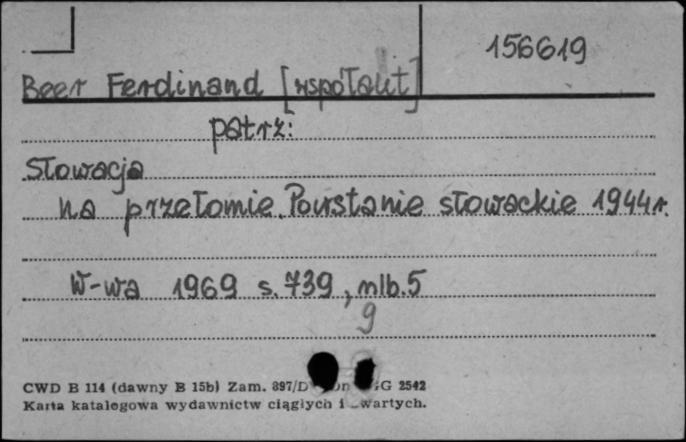 156619
Beer Ferdinand [współaut]
patrz:
Słowacja
na przełomie. Powstanie słowackie 1944 r.
W-wa 1969 s. 739, mlb. 5
9
CWD B 114 (dawny B 15b) Zam. 897/D GG 2542
Karta katalogowa wydawnictw ciągłych i zwartych.